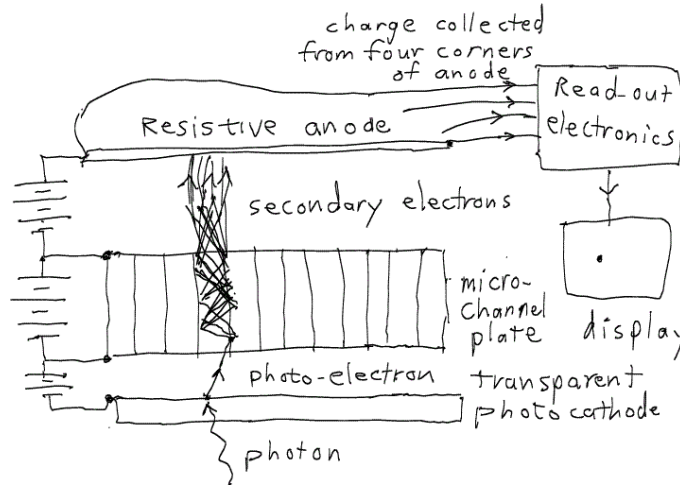 charge collected
from four corners
of anode
Read-out
electronics
Resistive anode
secondary electrons
micro-
channel
plate
display
photo-electron
transparent
photocathode
photon